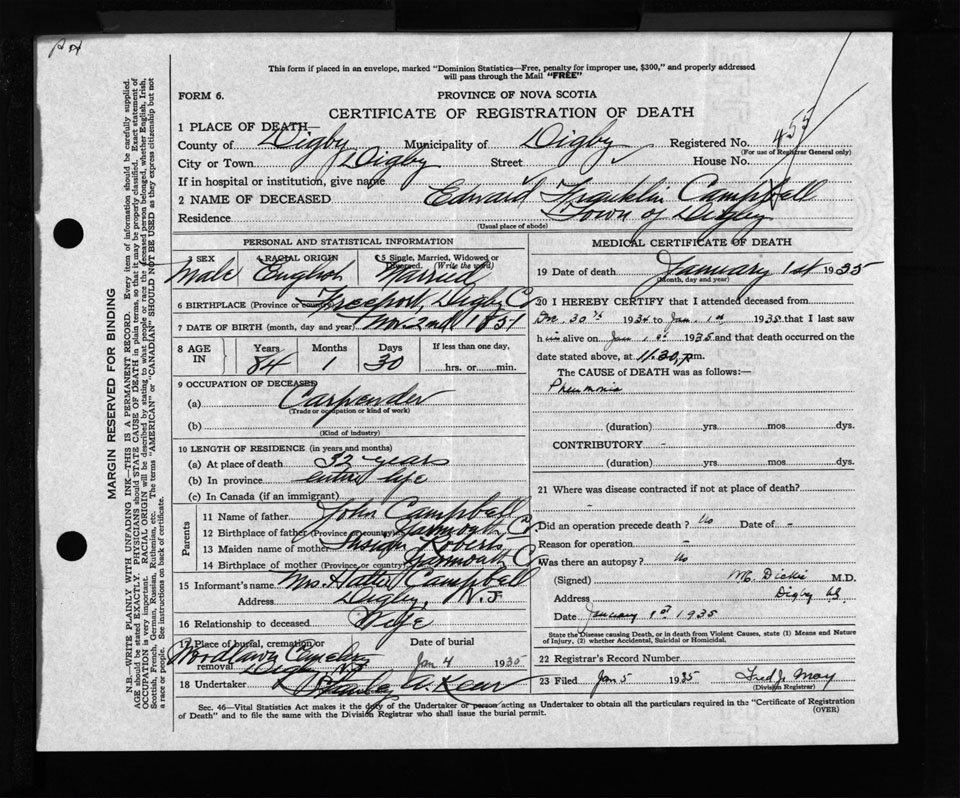 This form if placed in an envelope, marked "Dominion Statistics—Free, penalty for improper use, $300," and properly addressed
will pass through the Mail "FREE"
FORM 6.
PROVINCE OF NOVA SCOTIA
CERTIFICATE OF REGISTRATION OF DEATH
1 PLACE OF DEATH—
County of Digby Municipality of Digby Registered No. 455
(For use of Registrar General only)
City or Town Digby Street House No.
If in hospital or institution, give name
2 NAME OF DECEASED Edward Franklin Campbell
Residence Town of Digby
(Usual place of abode)
PERSONAL AND STATISTICAL INFORMATION
3 SEX 4 RACIAL ORIGIN 5 Single, Married, Widowed or Divorced. (Write the word)
Male English Married
6 BIRTHPLACE (Province or country) Freeport, Digby Co
7 DATE OF BIRTH (month, day and year) Nov. 2nd 1851
8 AGE IN Years Months Days If less than one day,
84 1 30 hrs. or min.
9 OCCUPATION OF DECEASED
(a) Carpender
(Trade or occupation or kind of work)
(b)
(Kind of industry)
10 LENGTH OF RESIDENCE (in years and months)
(a) At place of death 32 years
(b) In province entire life
(c) In Canada (if an immigrant)
Parents
11 Name of father John Campbell
12 Birthplace of father (Province or country) Yarmouth Co
13 Maiden name of mother Roberts
14 Birthplace of mother (Province or country) Yarmouth Co
15 Informant's name Mrs. Hattie Campbell
Address Digby, N.S
16 Relationship to deceased Wife
17 Place of burial, cremation or removal Date of burial
Woodlawn Cemetery
Digby N.S Jan 4 1935
18 Undertaker
MEDICAL CERTIFICATE OF DEATH
19 Date of death January 1st 1935
(Month, day and year)
20 I HEREBY CERTIFY that I attended deceased from
Dec 30th 1934 to Jan. 1st 1935 that I last saw
him alive on Jan 1st 1935 and that death occurred on the
date stated above, at 11.30 p.m.
The CAUSE of DEATH was as follows:—
Pneumonia
(duration) yrs. mos. dys.
CONTRIBUTORY -
(duration) yrs. mos. dys.
21 Where was disease contracted if not at place of death?
-
Did an operation precede death? No Date of -
Reason for operation -
Was there an autopsy? No
(Signed) M. Dickie M.D.
Address Digby NS.
Date January 1st 1935
State the Disease causing Death, or in death from Violent Causes, state (1) Means and Nature
of Injury, (2) whether Accidental, Suicidal or Homicidal.
22 Registrar's Record Number
23 Filed Jan 5 1935 Fred J. May
(Division Registrar)
Sec. 46—Vital Statistics Act makes it the duty of the Undertaker or person acting as Undertaker to obtain all the particulars required in the "Certificate of Registration
of Death" and to file the same with the Division Registrar who shall issue the burial permit. (OVER)
MARGIN RESERVED FOR BINDING
N.B.—WRITE PLAINLY WITH UNFADING INK—THIS IS A PERMANENT RECORD. Every item of information should be carefully supplied.
AGE should be stated EXACTLY. PHYSICIANS should STATE CAUSE OF DEATH in plain terms, so that it may be properly classified. Exact statement of
OCCUPATION is very important. RACIAL ORIGIN will be described by stating to what people or race the deceased person belonged, whether English, Irish,
Scottish, French, German, Russian, Ruthenian, etc. The terms "AMERICAN" or "CANADIAN" SHOULD NOT BE USED as they express citizenship but not
a race or people. See instructions on back of certificate.